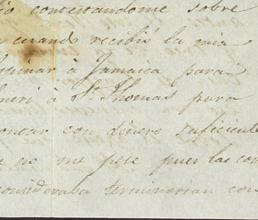 contestandome sobre
cuando recibió la mia
á Jamaica para
á St. Thomas para
con dinero suficiente
no me pese pues las con
consideraba terminarian con